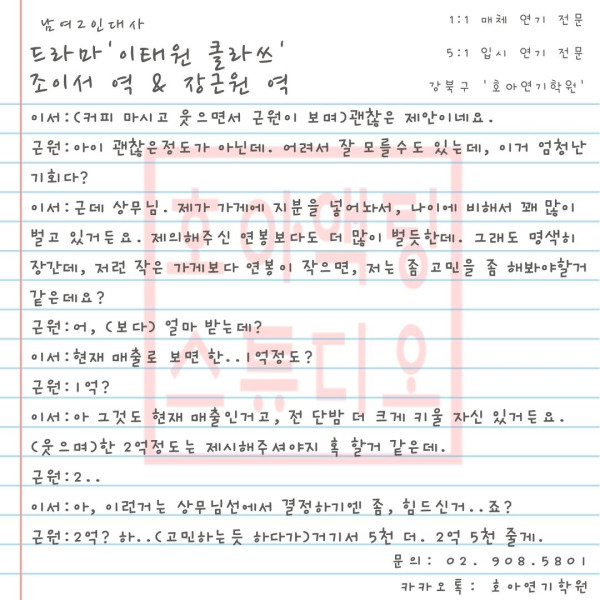 남여2인대사
1:1 매체 연기 전문
드라마 '이태원 클라쓰'
5:1 입시 연기 전문
조이서 역 & 장근원 역
강북구 '호아연기학원'
이서:(커피 마시고 웃으면서 근원이 보며)괜찮은 제안이네요.
근원:아이 괜찮은정도가 아닌데. 어려서 잘 모를수도 있는데, 이거 엄청난
기회다?
이서:근데 상무님. 제가 가게에 지분을 넣어놔서, 나이에 비해서 꽤 많이
벌고 있거든요. 제의해주신 연봉보다도 더 많이 벌듯한데. 그래도 명색히
장간데, 저런 작은 가게보다 연봉이 작으면, 저는 좀 고민을 좀 해봐야할거
같은데요?
근원:어, (보다) 얼마 받는데?
이서:현재 매출로 보면 한..1억정도?
근원:1억?
이서:아 그것도 현재 매출인거고, 전 단밤 더 크게 키울 자신 있거든요.
(웃으며)한 2억정도는 제시해주셔야지 혹 할거 같은데.
근원:2..
이서:아, 이런거는 상무님선에서 결정하기엔 좀, 힘드신거..죠?
근원:2억? 하..(고민하는듯 하다가)거기서 5천 더. 2억 5천 줄게.
문의: 02. 908.5801
카카오톡: 호아연기학원
호아액팅
스튜디오